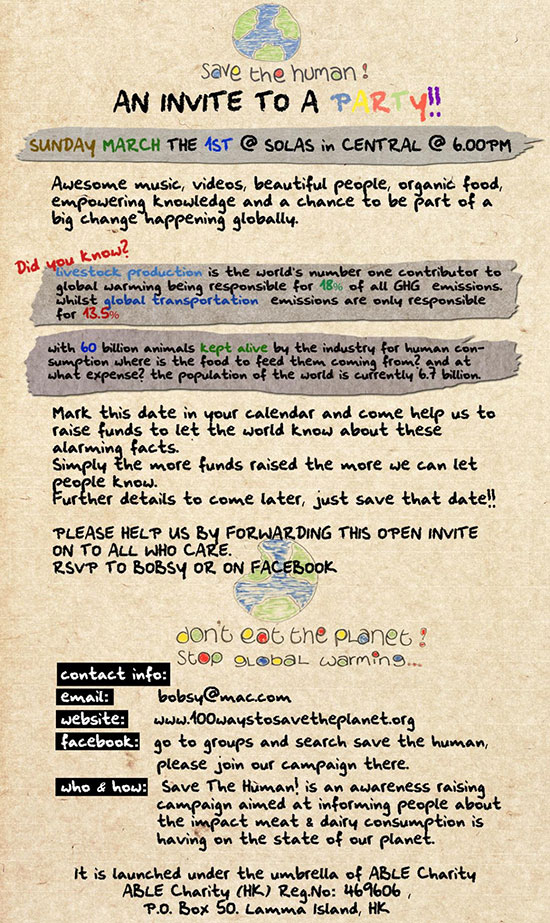 save the human!
AN INVITE TO A PARTY!!
SUNDAY MARCH THE 1ST @ SOLAS in CENTRAL @ 6.00PM
Awesome music, videos, beautiful people, organic food,
empowering knowledge and a chance to be part of a
big change happening globally.
Did you know?
livestock production is the world's number one contributor to
global warming being responsible for 18% of all GHG emissions.
whilst global transportation emissions are only responsible
for 13.5%
with 60 billion animals kept alive by the industry for human con-
sumption where is the food to feed them coming from? and at
what expense? the population of the world is currently 6.7 billion.
Mark this date in your calendar and come help us to
raise funds to let the world know about these
alarming facts.
Simply the more funds raised the more we can let
people know.
Further details to come later, just save that date!!
PLEASE HELP US BY FORWARDING THIS OPEN INVITE
ON TO ALL WHO CARE.
RSVP TO BOBSY OR ON FACEBOOK
don't eat the planet!
Stop global warming...
contact info:
email: bobsy@mac.com
website: www.100waystosavetheplanet.org
facebook: go to groups and search save the human,
please join our campaign there.
who & how: Save The Human! is an awareness raising
campaign aimed at informing people about
the impact meat & dairy consumption is
having on the state of our planet.
It is launched under the umbrella of ABLE Charity
ABLE Charity (HK) Reg.No: 469606 ,
P.O. Box 50. Lamma Island, HK